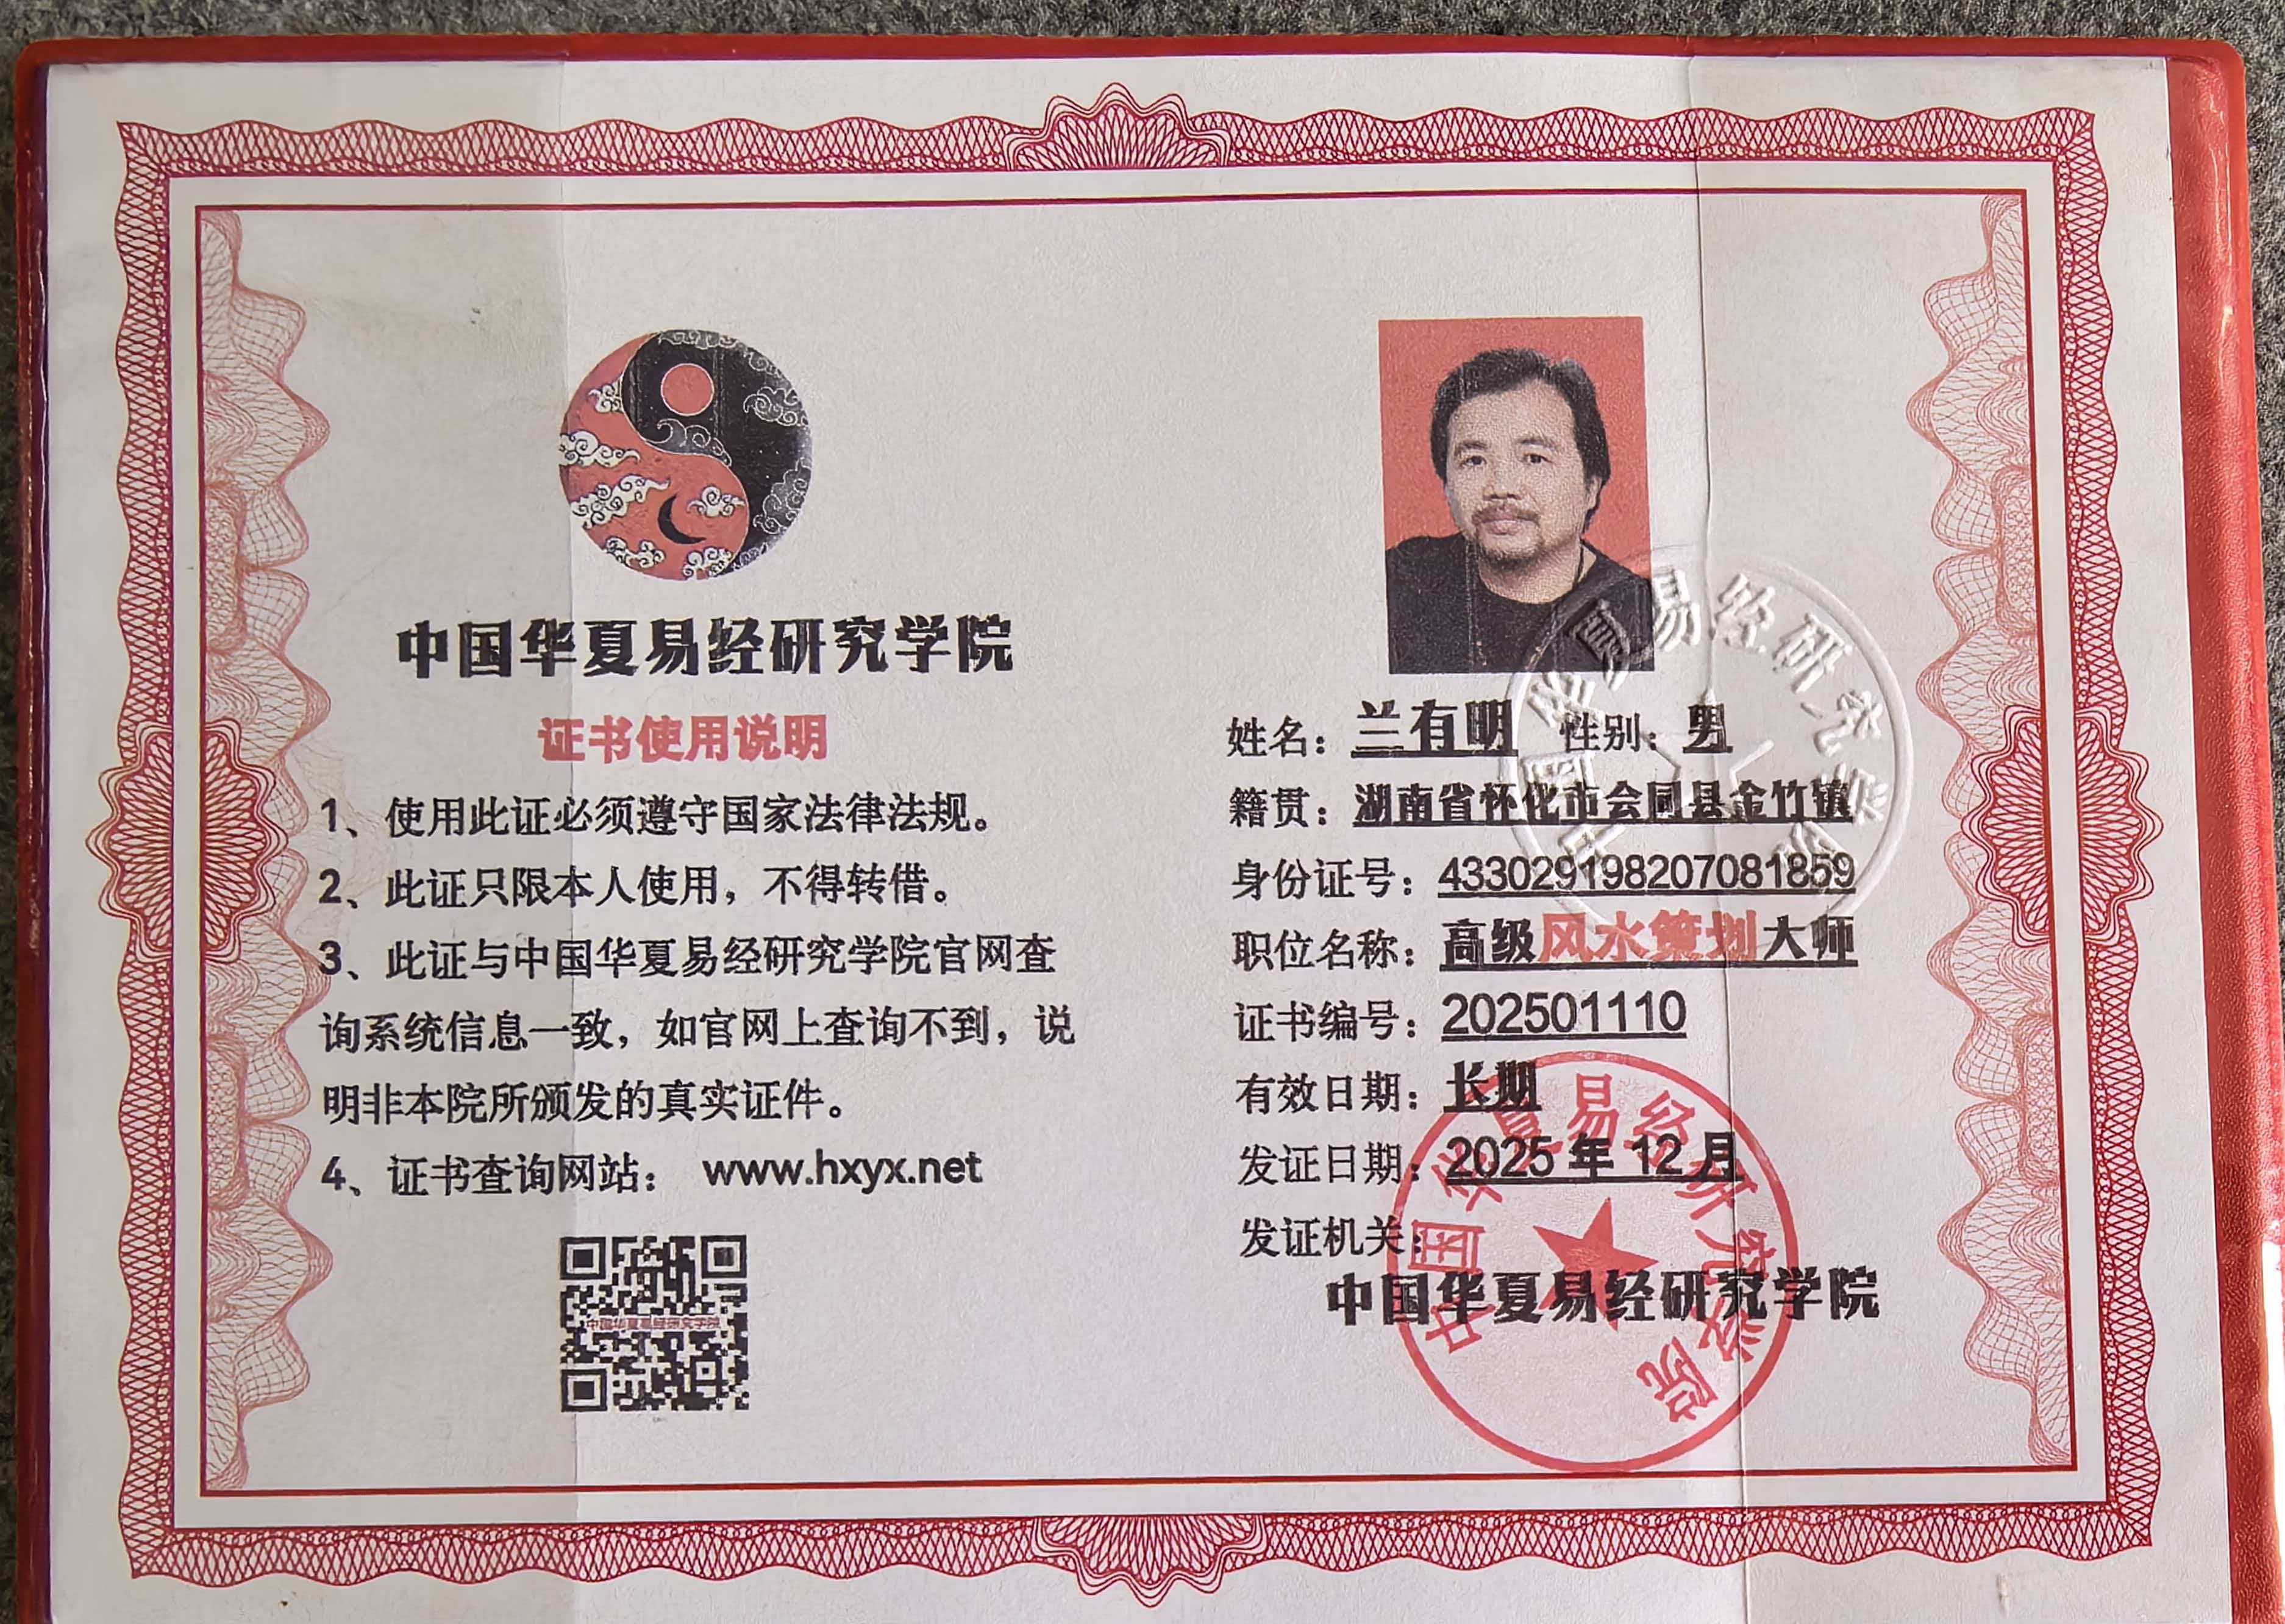 中国华夏易经研究学院
证书使用说明
1、使用此证必须遵守国家法律法规。
2、此证只限本人使用，不得转借。
3、此证与中国华夏易经研究学院官网查
询系统信息一致，如官网上查询不到，说
明非本院所颁发的真实证件。
4、证书查询网站： www.hxyx.net
中国华夏易经研究学院
姓名：兰有明 性别：男
籍贯：湖南省怀化市会同县金竹镇
身份证号：433029198207081859
职位名称：高级风水策划大师
证书编号：202501110
有效日期：长期
发证日期：2025年12月
发证机关：
中国华夏易经研究学院
中国华夏易经研究学院
中国华夏易经研究学院